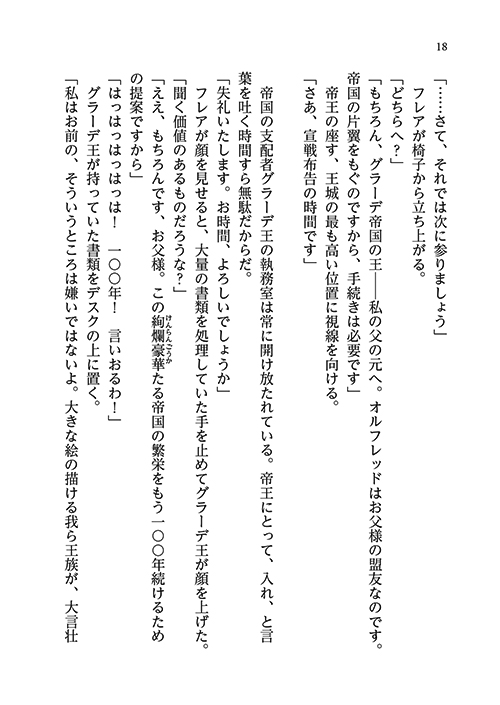 18
「……さて、それでは次に参りましょう」
フレアが椅子から立ち上がる。
「どちらへ？」
「もちろん、グラーデ帝国の王――私の父の元へ。オルフレッドはお父様の盟友なのです。
帝国の片翼をもぐのですから、手続きは必要です」
帝王の座す、王城の最も高い位置に視線を向ける。
「さあ、宣戦布告の時間です」
帝国の支配者グラーデ王の執務室は常に開け放たれている。帝王にとって、入れ、と言
葉を吐く時間すら無駄だからだ。
「失礼いたします。お時間、よろしいでしょうか」
フレアが顔を見せると、大量の書類を処理していた手を止めてグラーデ王が顔を上げた。
「聞く価値のあるものだろうな？」
「ええ、もちろんです、お父様。この絢爛豪華たる帝国の繁栄をもう一〇〇年続けるため
けんらんごうか
の提案ですから」
「はっはっはっはっは！　一〇〇年！　言いおるわ！」
グラーデ王が持っていた書類をデスクの上に置く。
「私はお前の、そういうところは嫌いではないよ。大きな絵の描ける我ら王族が、大言壮